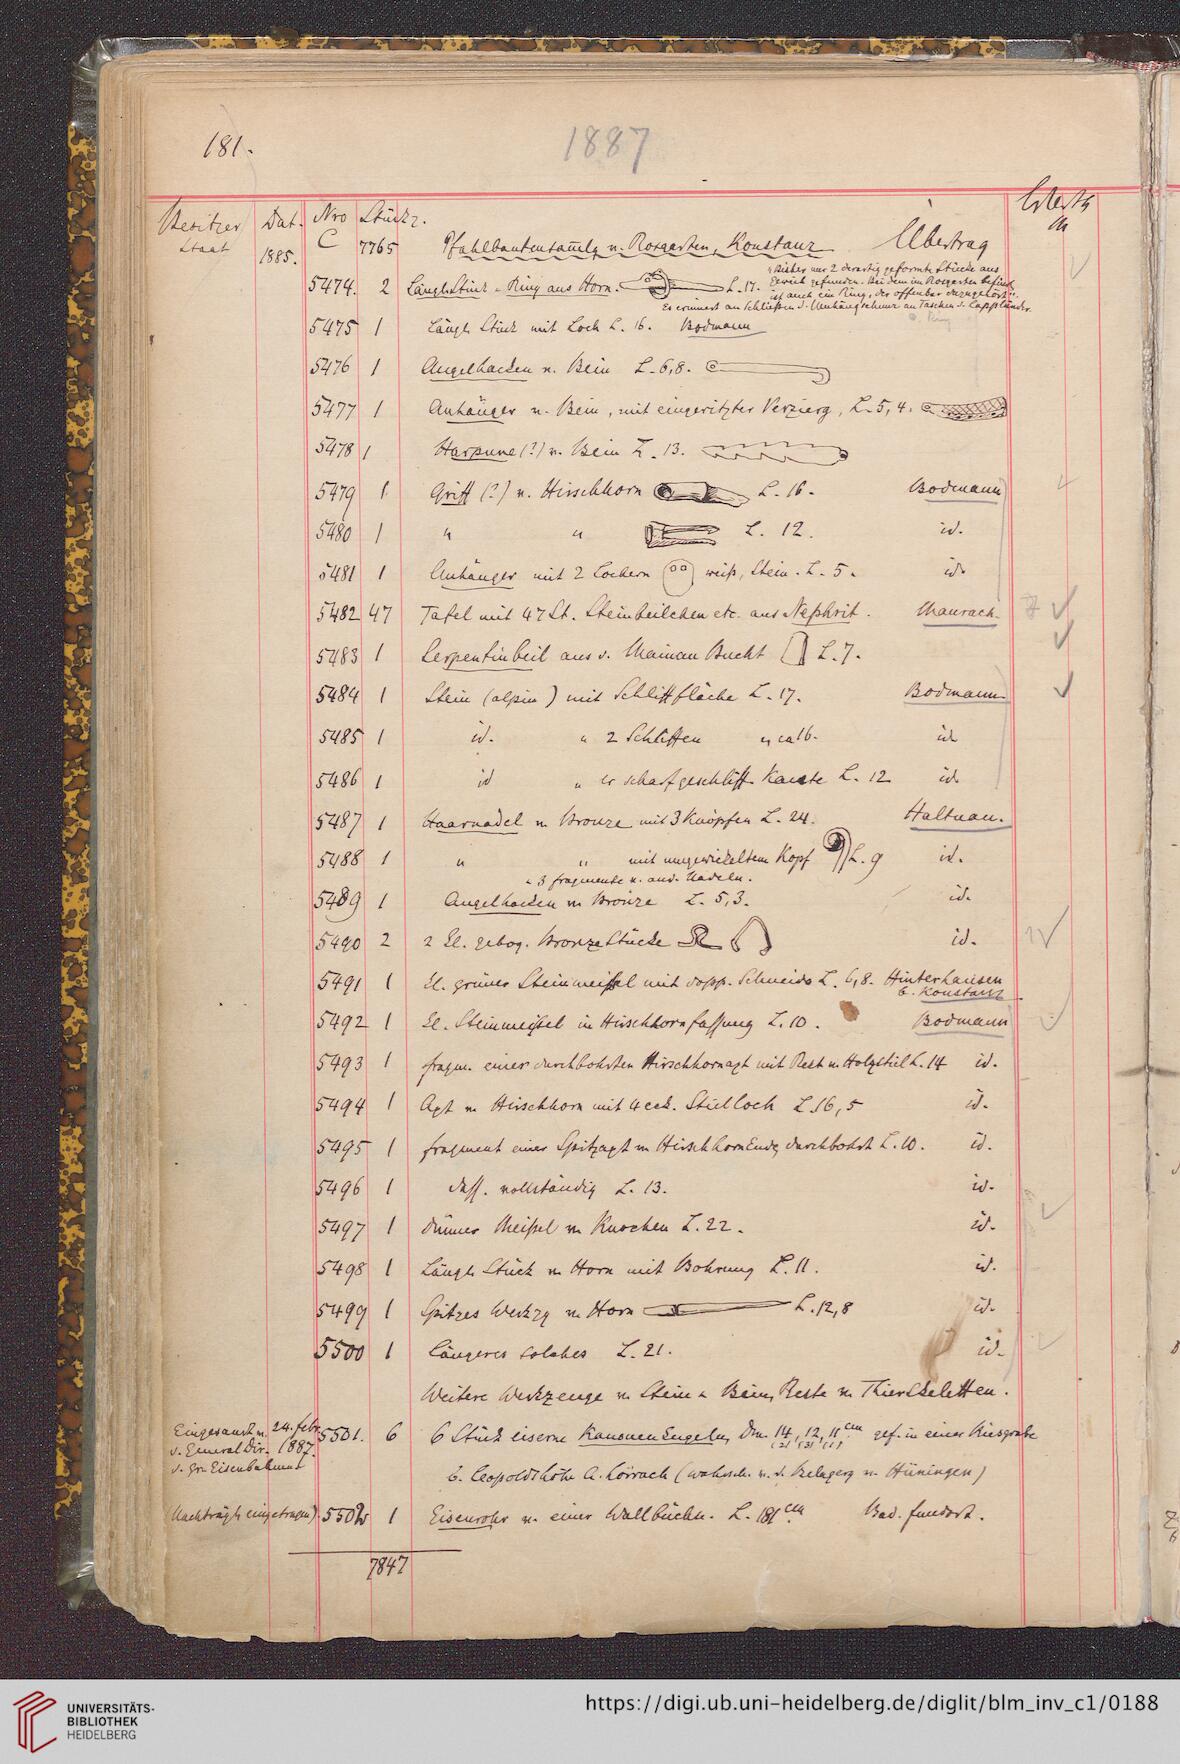 181.
1887
Besitzer Dat. Nro Stückz.
Staat 1885. C 7765 Pfahlbautensam̅lg v. Rosgarten, Konstanz Übertrag
„Bisher nur 2 derartig geformte Stücke aus
5474. 2 Längl. Stück u. Ring aus Horn. L. 17. Geweih gefunden. Bei dem im Rosgarten befindl.
ist auch ein Ring, der offenbar dazugehört“.
Es erinnert an Schließen d. Umhängschnur an Taschen d. Lappländer.
5475 1 Längl. Stück mit Loch L. 16. Bodmann
5476 1 Angelhacken v. Bein L. 6,8.
5477 1 Anhänger v. Bein, mit eingeritzter Verzierg, L. 5,4.
5478 1 Harpune (?) v. Bein L. 13.
5479 1 Griff (?) v. Hirschhorn L. 16. Bodmann
5480 1 " " L. 12. id.
5481 1 Anhänger mit 2 Löchern weiß. Stein. L. 5. id.
5482 47 Tafel mit 47 St. Steinbeilchen etc. aus Nephrit. Maurach.
5483 1 Serpentinbeil aus d. Mainau Bucht L. 7.
5484 1 Stein (alpin) mit Schlifffläche L. 17. Bodmann
5485 1 id. " 2 Schliffen " ca 16. id.
5486 1 id " er scharfgeschliff. Kante L. 12 id.
5487 1 Haarnadel v. Bronze mit 3 Knöpfen L. 24. Haltnau.
5488 1 " " mit umgewickeltem Kopf L. 9 id.
" 3 fragmente v. and. Nadeln.
5489 1 Angelhacken v. Bronze L. 5,3. id.
5490 2 2 kl. gebog. Bronzestücke id.
5491 1 kl. grüner Steinmeißel mit dopp. Schneide L. 6,8. Hinterhausen
b. Konstanz
5492 1 kl. Steinmeißel in Hirschhornfassung L. 10. Bodmann
5493 1 fragm. einer durchbohrten Hirschhornaxt mit Rest v. Holzstiel L. 14 id.
5494 1 Axt v. Hirschhorn mit 4 eck. Stielloch L. 16,5 id.
5495 1 fragment einer Spitzaxt v. Hirschhornende, durchbohrt L. 10. id.
5496 1 dass. vollständig L. 13. id.
5497 1 dünner Meißel v. Knochen L. 22. id.
5498 1 Längl. Stück v. Horn mit Bohrung L. 11. id.
5499 1 Spitzes Werkzg v. Horn L. 12,8 id.
5500 1 Längeres solches L. 21. id.
Weitere Werkzeuge v. Stein u. Bein, Reste v. Thierskeletten.
Eingesandt v. 24. febr.
d. General Dir. 1887.
d. gr. Eisenbahnen
5501. 6 6 Stück eiserne Kanonenkugeln, Dm. 14, 12, 11 cm gef. in einer Kiesgrube
(2) (3) (1)
b. Leopoldshöhe A. Lörrach (wahrsch. v. d. Belagerg v. Hüningen)
(Nachträgl. eingetragen) 5502 1 Eisenrohr v. einer Wallbüchse. L. 181 cm. Bad. fundort.
7847
UNIVERSITÄTS-
BIBLIOTHEK
HEIDELBERG
https://digi.ub.uni-heidelberg.de/diglit/blm_inv_c1/0188